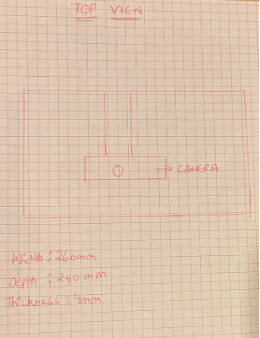 TOP VIEW
CAMERA
Width : 260mm
Depth : 240 mm
Thickness : 4mm